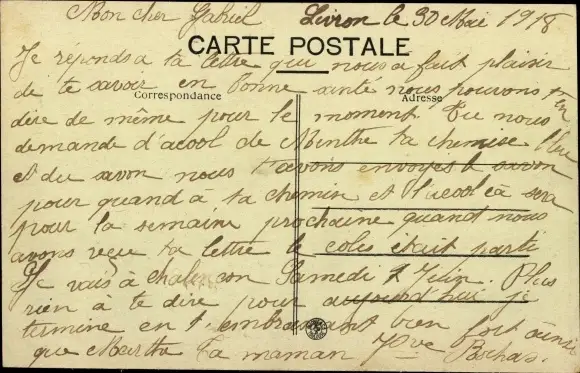 Mon cher Gabriel Livron le 30 Mai 1918
CARTE POSTALE
Je réponds a ta lettre qui nous a fait plaisir
de te savoir en bonne santé nous pouvons t'en
Correspondance Adresse
dire de même pour le moment. Tu nous
demande d'acool de Menthe ta chemise
et du savon nous t'avons envoyes le savon
pour quand à ta chemin et l'acool à sera
pour la semaine prochaine quand nous
avons reçu ta lettre le coles était parti
Je vais à chalencon Samedi 1 Juin. Plus
rien à te dire pour aujourd'hui je
termine en t'embrassant bien fort ainsi
que Martha Ta maman Vve Rochas